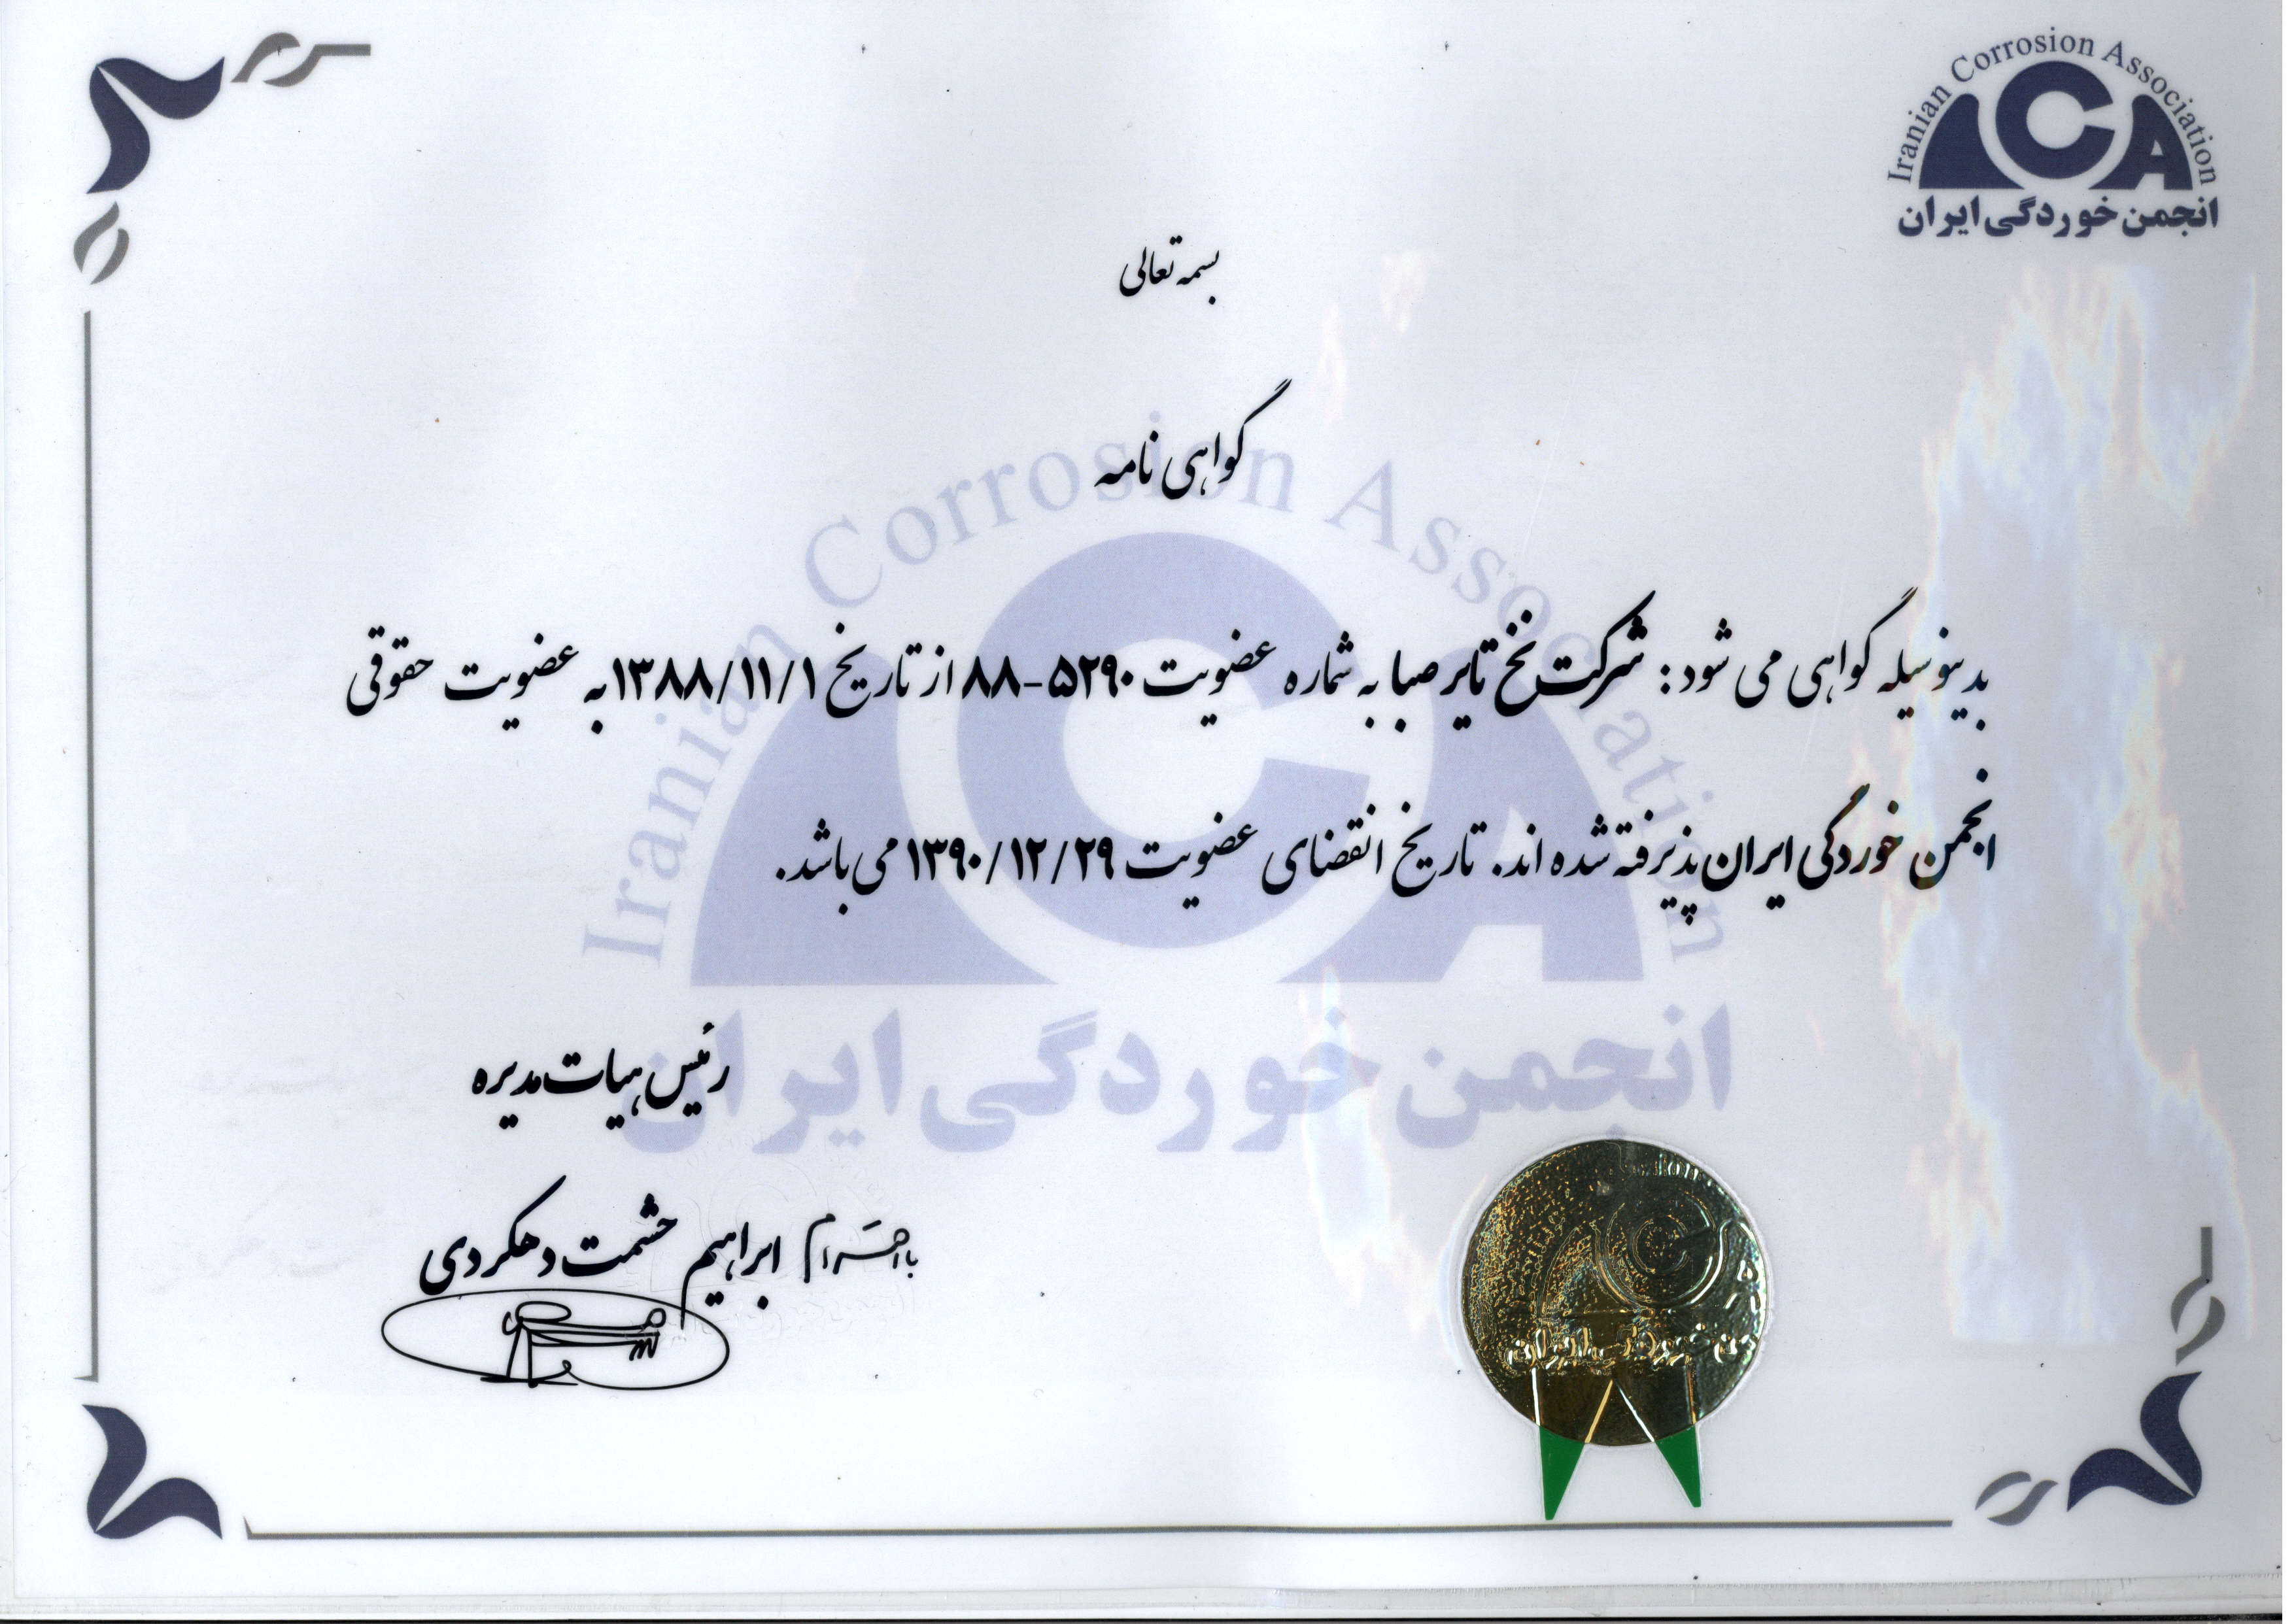 Iranian Corrosion Association
ICA
انجمن خوردگی ایران
بسمه تعالی
گواهی نامه
بدینوسیله گواهی می شود: شرکت نخ تایر صبا به شماره عضویت ۵۲۹۰-۸۸ از تاریخ ۱۳۸۸/۱۱/۱ به عضویت حقوقی
انجمن خوردگی ایران پذیرفته شده اند. تاریخ انقضای عضویت ۱۳۹۰/۱۲/۲۹ می باشد.
Iranian Corrosion Association
ICA
انجمن خوردگی ایران
رئیس هیات مدیره
با احترام ابراهیم حشمت دهکردی
خوردگی ایران